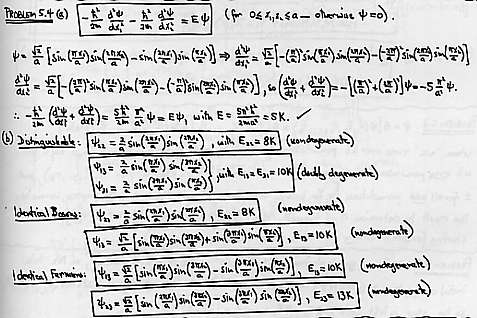 PROBLEM 5.4 (a) -ħ²/2m d²ψ/dx₁² - ħ²/2m d²ψ/dx₂² = Eψ (for 0≤x₁,x₂≤a — otherwise ψ=0).
ψ = √2/a [sin(πx₁/a) sin(2πx₂/a) - sin(2πx₁/a) sin(πx₂/a)] ⇒ d²ψ/dx₁² = √2/a [-(π/a)² sin(πx₁/a) sin(2πx₂/a) - -(2π/a)² sin(2πx₁/a) sin(πx₂/a)]
d²ψ/dx₂² = √2/a [-(2π/a)² sin(πx₁/a) sin(2πx₂/a) - -(π/a)² sin(2πx₁/a) sin(πx₂/a)], so (d²ψ/dx₁² + d²ψ/dx₂²) = -[(π/a)² + (2π/a)²]ψ = -5 π²/a² ψ.
∴ -ħ²/2m (d²ψ/dx₁² + d²ψ/dx₂²) = 5ħ²/2m π²/a² ψ = Eψ, with E = 5π²ħ²/2ma² = 5K. ✓
(b) Distinguishable: ψ₂₂ = 2/a sin(2πx₁/a) sin(2πx₂/a), with E₂₂ = 8K (nondegenerate)
ψ₁₃ = 2/a sin(πx₁/a) sin(3πx₂/a)
ψ₃₁ = 2/a sin(3πx₁/a) sin(πx₂/a) }, with E₁₃ = E₃₁ = 10K (doubly degenerate)
Identical Bosons: ψ₂₂ = 2/a sin(2πx₁/a) sin(2πx₂/a), E₂₂ = 8K (nondegenerate)
ψ₁₃ = √2/a [sin(πx₁/a) sin(3πx₂/a) + sin(3πx₁/a) sin(πx₂/a)], E₁₃ = 10K (nondegenerate)
Identical Fermions: ψ₁₃ = √2/a [sin(πx₁/a) sin(3πx₂/a) - sin(3πx₁/a) sin(πx₂/a)], E₁₃ = 10K (nondegenerate)
ψ₂₃ = √2/a [sin(2πx₁/a) sin(3πx₂/a) - sin(3πx₁/a) sin(2πx₂/a)], E₂₃ = 13K (nondegenerate)